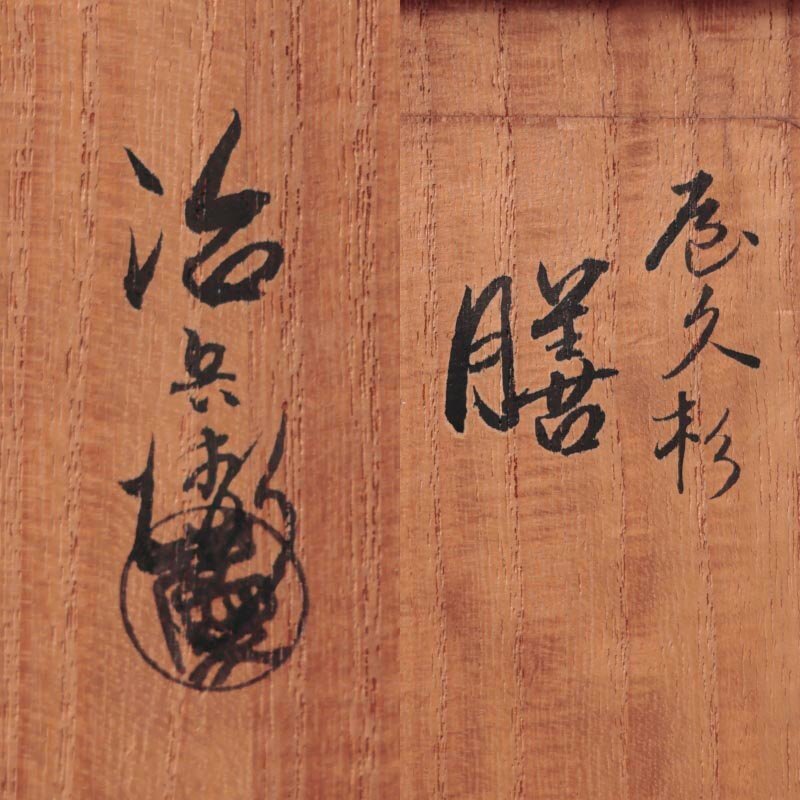 屋久杉
膳
治兵衛